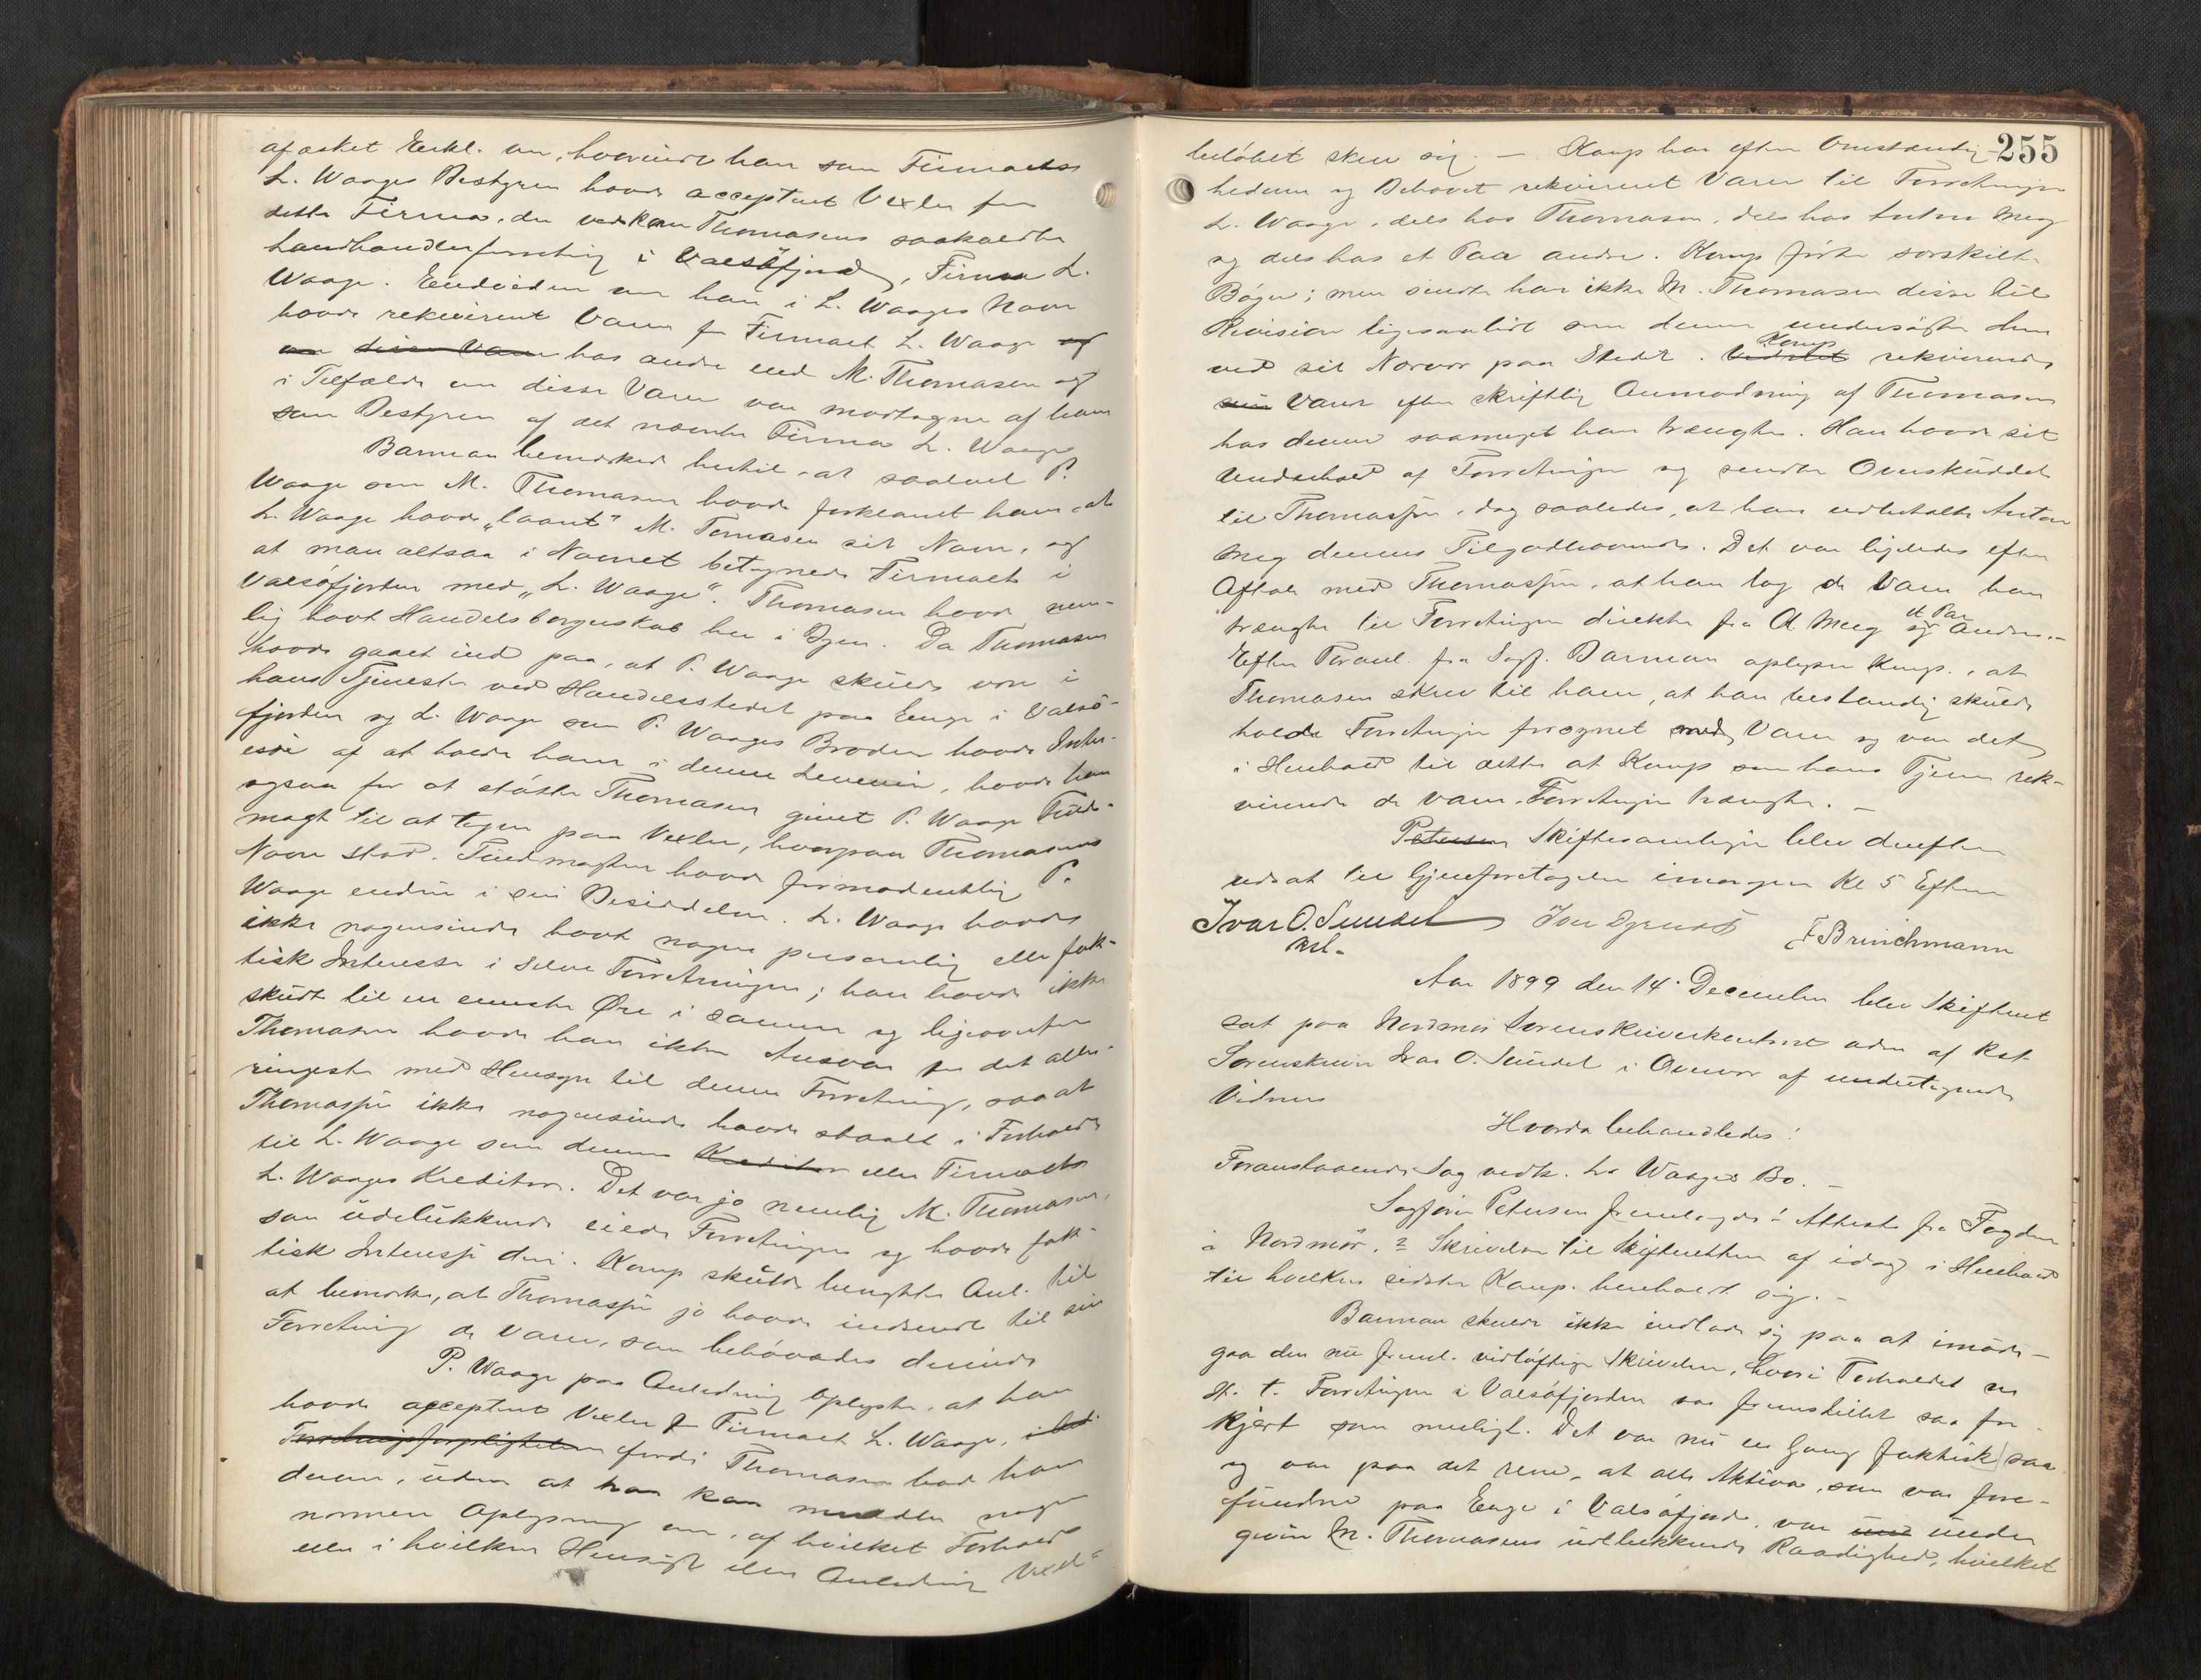 afæsket Erkl. om, hvorvidt han som Firmaets
L. Waages Bestyrer havde acceptert Vexler for
dette Firma, der vedkom Thomasens saakaldte
Landhandlerforretning i Valsöfjord, Firma L.
Waage. Endvidere om han i L. Waages Navn
havde rekvirert Varer for Firmaet L. Waage og
om disse Varer hos andre end M. Thomasen og
i Tilfælde om disse Varer var mottagne af ham
som Bestyrer af det nævnte Firma L. Waage
Barman bemærkede hertil, at saavel P.
Waage som M. Thomasen havde forklaret ham, at
L. Waage havde „laant" M. Tomasen sit Navn, og
at man altsaa i Navnet betegnede Firmaet i
Valsöfjorden med „L. Waage". Thomasen havde nem-
lig havt Handelsborgerskab her i Byen. Da Thomasen
havde gaaet ind paa, at P. Waage skulde være i
hans Tjeneste ved Handelsstedet paa Enge i Valsö-
fjorden og L. Waage som P. Waages Broder havde Inter-
esse af at holde ham i denne Levevei, havde han
ogsaa for at støtte Thomasen givet P. Waage Fuld-
magt til at tegne paa Vexler, hvorpaa Thomasens
Navn stod. Fuldmagten havde formodentlig P.
Waage endnu i sin Besiddelse. L. Waage havde
ikke nogensinde havt nogen personlig eller fak-
tisk Interesse i selve Forretningen; han havde ikke
skudt til en eneste Øre i samme og ligeoverfor
Thomasen havde han ikke Ansvar for det aller-
ringeste med Hensyn til denne Forretning, saa at
Thomassen ikke nogensinde havde staaet i Forhold
til L. Waage som dennes Kreditor eller Firmaets
L. Waages Kreditor. Det var jo nemlig M. Thomasen,
som udelukkende eiede Forretningen og havde fak-
tisk Interesse deri. Komp skulde benytte Anl. til
at bemærke, at Thomassen jo havde indsendt til sin
Forretning de Varer, som behövedes derinde
P. Waage paa Anledning oplyste, at han
havde acceptert Vexler for Firmaet L. Waage, i det
Forretningsforpligtelsen fordi Thomasen bad ham
derom, uden at han kan meddele noget
nærmere Oplysning om, af hvilket Forhold
eller i hvilken Hensigt eller Anledning Vexel-
255
belöbet skrev sig. — Komp har efter Omstændig-
hederne og Behovet rekvirert Varer til Forretningen
L. Waage, dels hos Thomasen, dels hos Anton Meg
og dels hos et Paa andre. Komp förte særskilte
Böger; men sendte han ikke M. Thomasen disse til
Revision ligesaalidt som denne undersögte dem
Komp
ved sit Nærvær paa Stedet. Vedrört rekvirerede
sine Varer efter skriftlig Anmodning af Thomasen
hos denne saameget han trængte. Han havde sit
Underhold af Forretningen og sendte Overskuddet
til Thomassen, dog saaledes, at han udbetalte Anton
Meg dennes Tilgodehavende. Det var ligeledes efter
Aftale med Thomassen, at han tog de Varer han
et Par
trængte til Forretningen direkte fra A Meg og Andre.—
Efter Foranl. fra Sagf. Barman oplyser Komp., at
Thomasen skrev til ham, at han bestandig skulde
holde Forretningen forsynet med Varer og var det
i Henhold til dette at Komp som hans Tjener rek-
virerede de Varer, Forretningen trængte. —
Petersen Skiftesamlingen blev derefter
udsat til Gjenforetagelse imorgen Kl 5 Efterm
Ivar O. Sundet F Brinchmann
kst.
Aar 1899 den 14. December blev Skifteret
sat paa Nordmör Sorenskriverkontoret adm af kst
Sorenskriver Ivar O. Sundet i Overvær af undertegnede
Vidner
Hvorda behandledes:
Foranstaaende Sag vedk. L. Waages Bo. —
Sagförer Petersen fremlagde 1 Attest fra Fogden
i Nordmör, 2 Skrivelse til Skifteretten af idag i Henhold
til hvilken sidste Komp. henholdt sig. —
Barman skulde ikke indlade sig paa at imöde-
gaa den nu freml. vidløftige Skrivelse, hvori Forholdet m
H. t. Forretningen i Valsöfjorden var fremstillet saa for
kjert som muligt. Det var nu en Gang faktisk saa
og var paa det rene, at alle Aktiva, som var fore-
fundne paa Enge i Valsöfjord, var und under
given M. Thomasens udelukkende Raadighed, hvilket